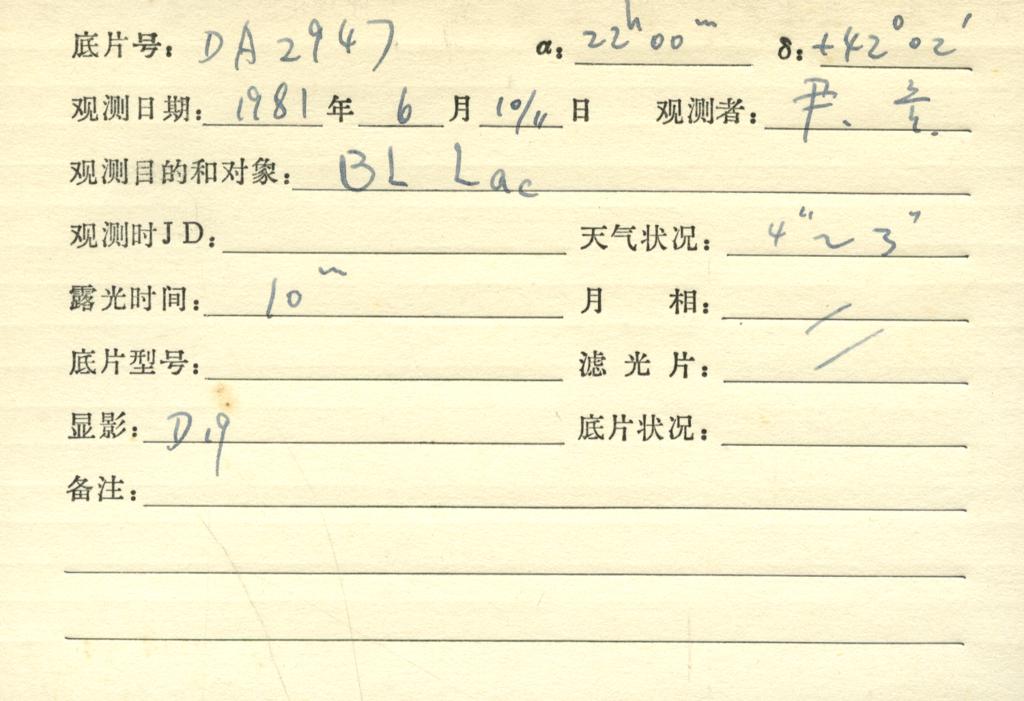 底片号: DA2947 α: 22ʰ00ᵐ δ: +42°02′
观测日期: 1981 年 6 月 10/11 日 观测者: 尹.
观测目的和对象: BL Lac
观测时JD: 天气状况: 4"~3"
露光时间: 10ᵐ 月 相: /
底片型号: 滤光片: /
显影: D19 底片状况:
备注: